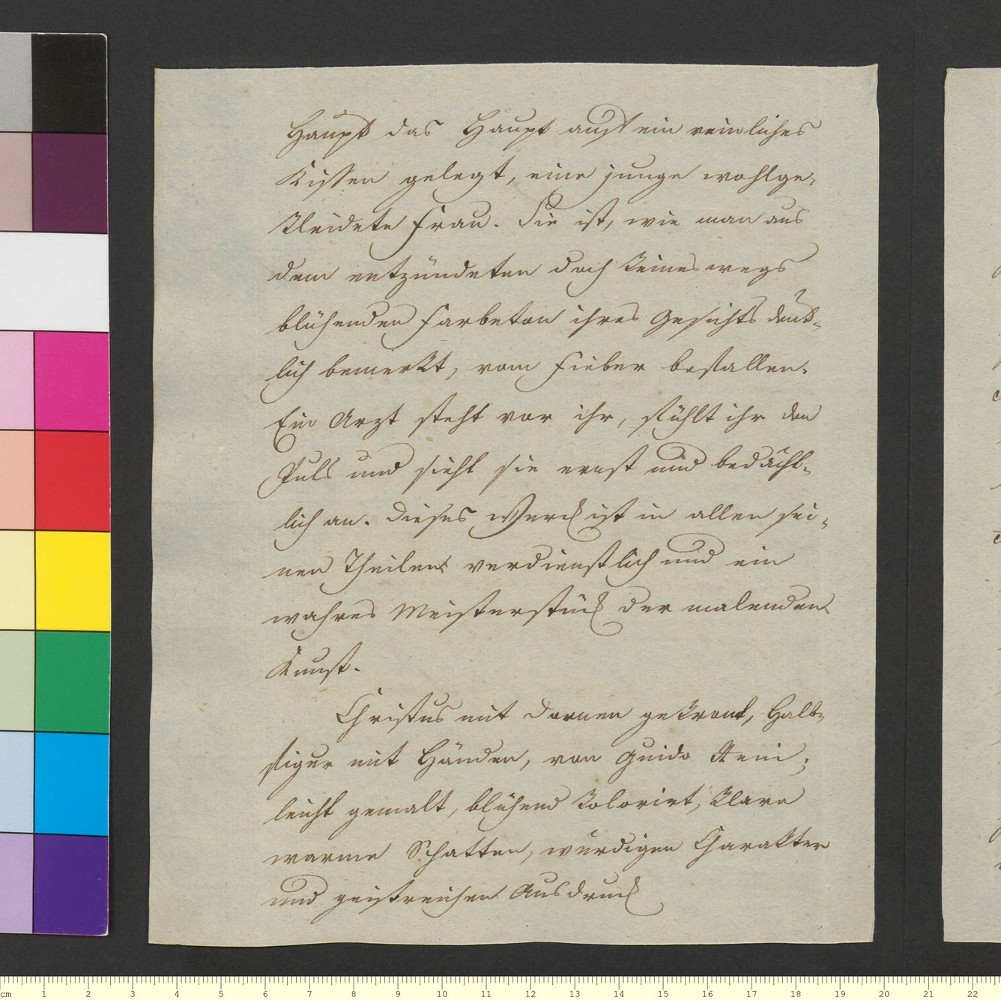 Haupt das Haupt auf ein reinliches
Kissen gelegt, eine junge wohlge-
kleidete Frau. Sie ist, wie man aus
dem entzündeten doch keineswegs
blühenden Farbeton ihres Gesichts deut-
lich bemerkt, vom Fieber befallen.
Ein Arzt steht vor ihr, fühlt ihr den
Puls und sieht sie ernst und bedächt-
lich an. Dieses Werck ist in allen sei-
nen Theilen verdienstlich und ein
wahres Meisterstück der malenden
Kunst.
Christus mit Dornen gekrönt, Halb-
figur mit Händen, von Guido Reni;
leicht gemalt, blühend kolorirt, klare
warme Schatten, würdigen Charakter
und geistreichen Ausdruck
cm 1 2 3 4 5 6 7 8 9 10 11 12 13 14 15 16 17 18 19 20 21 22